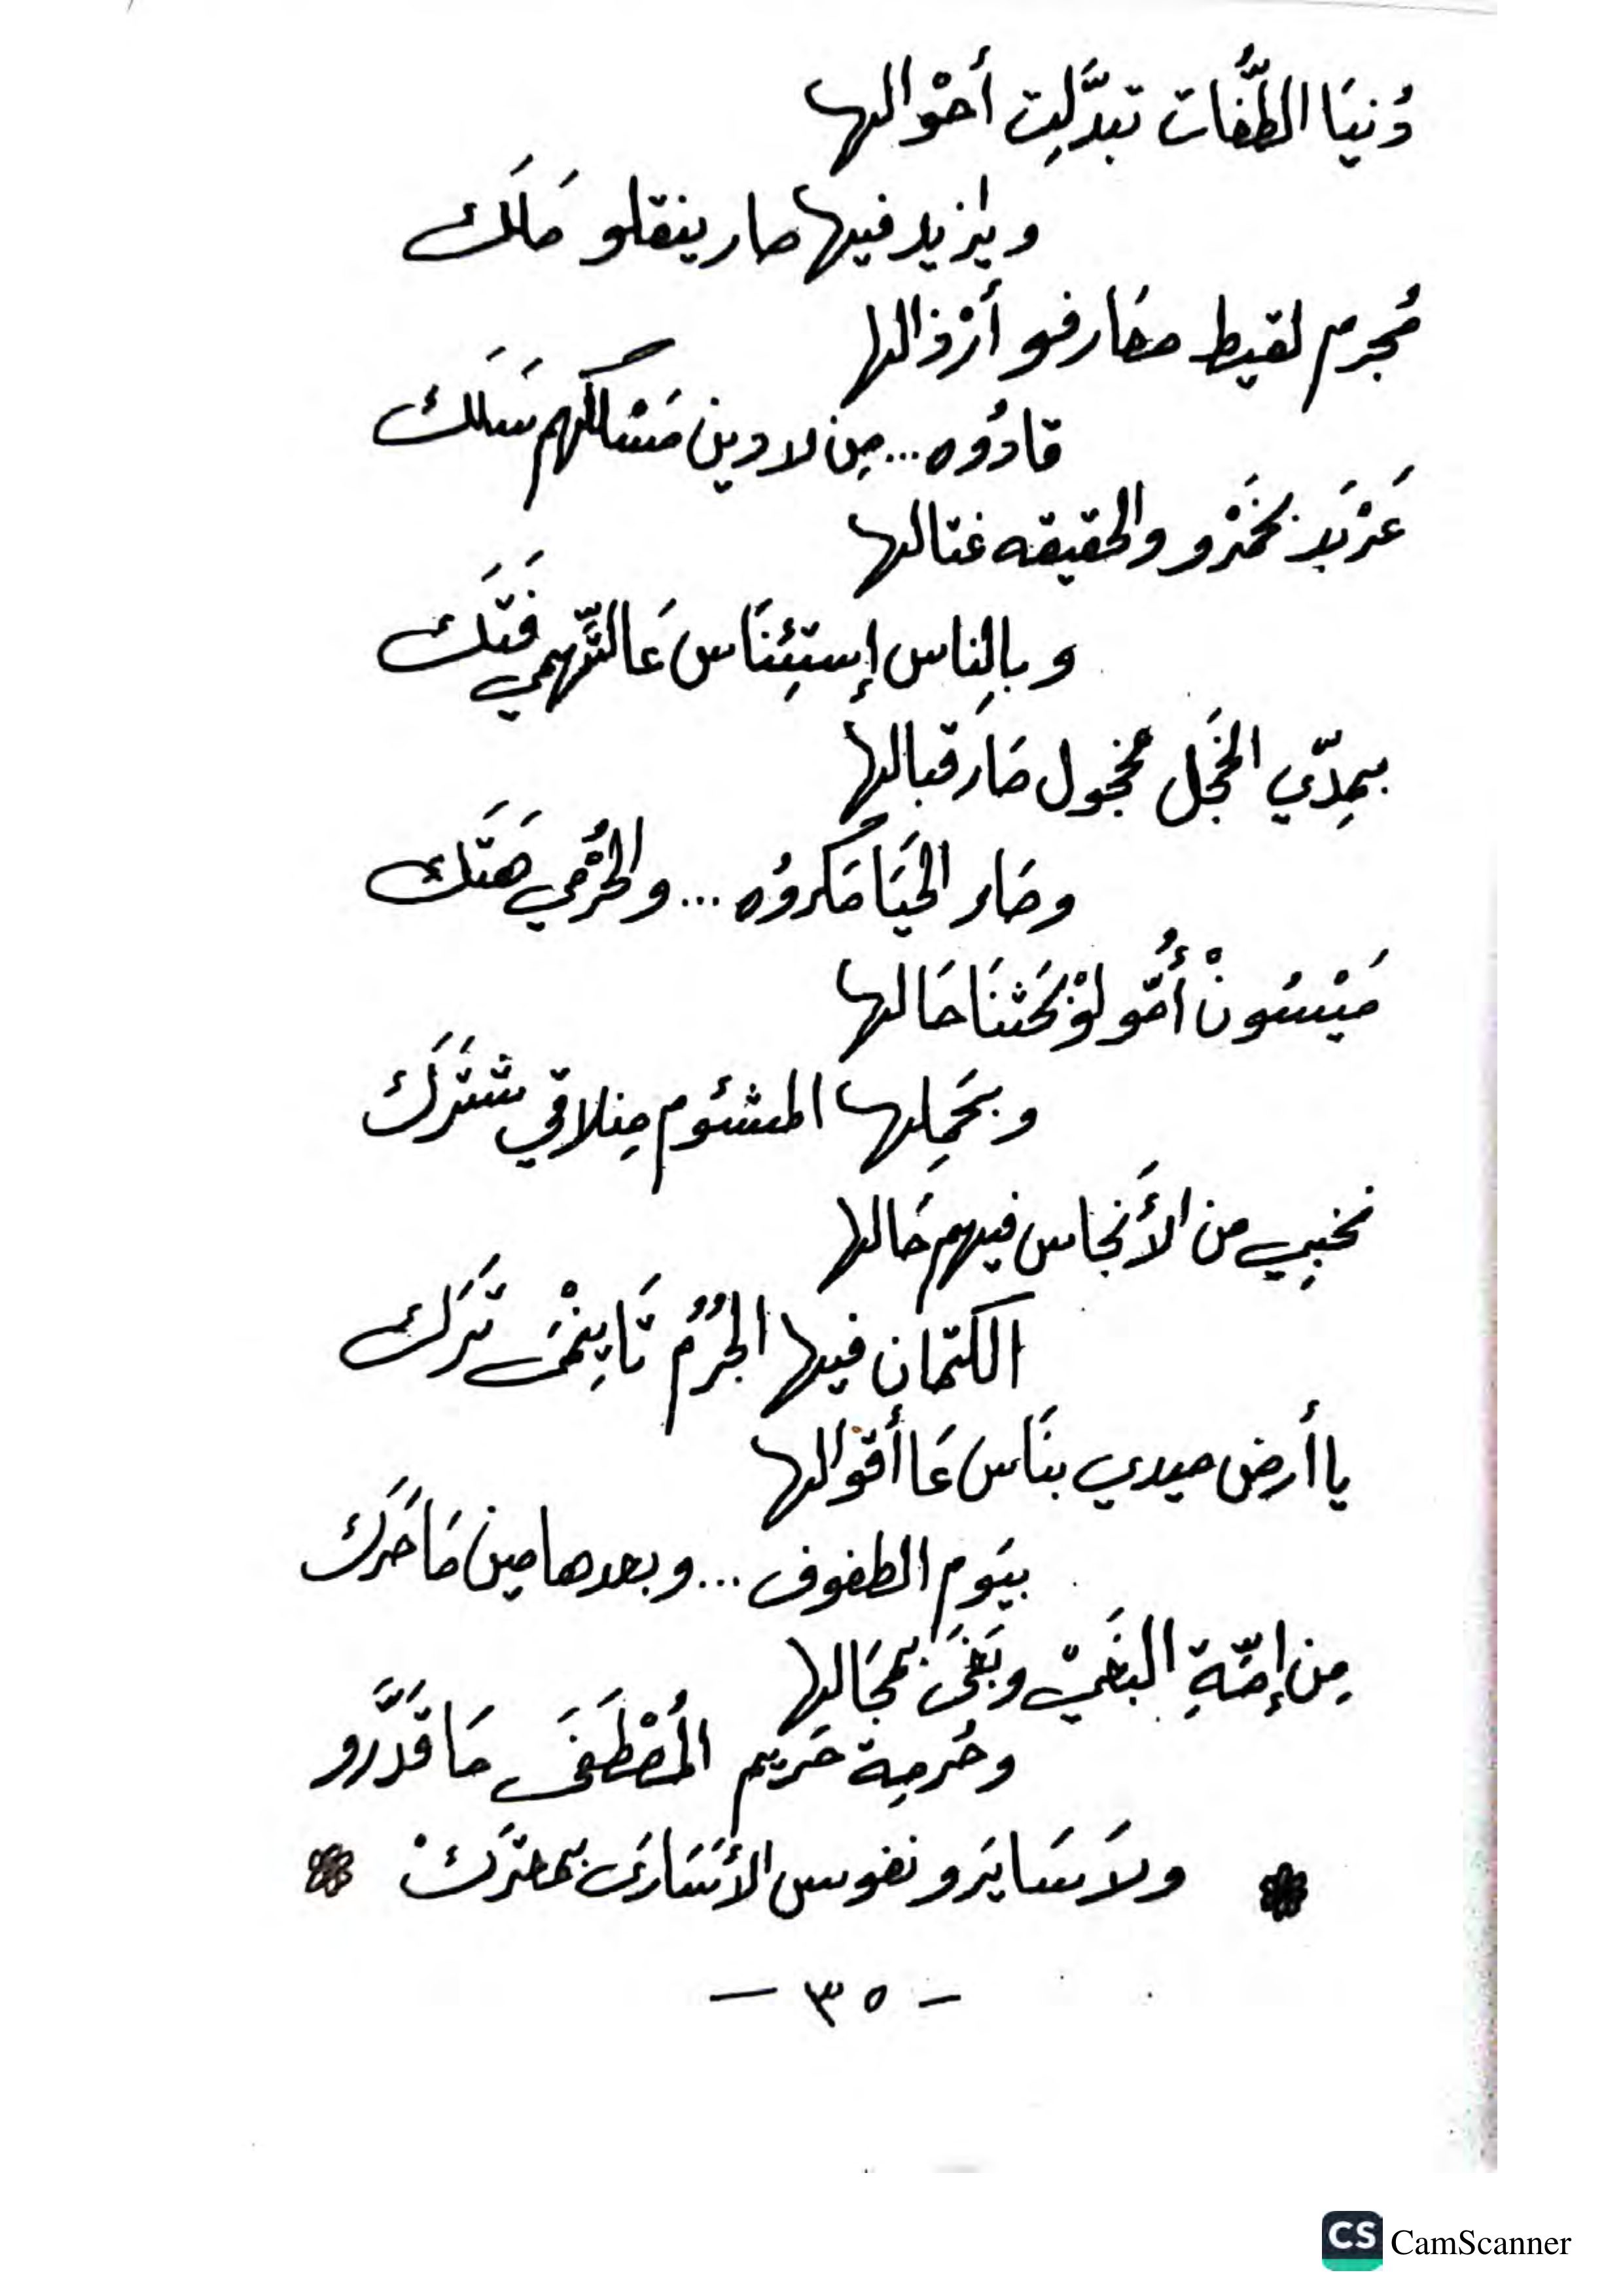 دُنيَا الطُّغَات تبدَّلِت أحْوالها
ويزيد فيها صار ينقلو مَلَك
مُجرم لقيط معَارفو أرْذالها
قادُوه...مِن لا دين مَسْالكهم سَلَك
عَرْبَد بخَمْرو والحقيقه غتالها
وبالِناس إستِئنَاس عَالتِّهمِي فَتَك
بمِدّي الخَجَل مخجول صَار قبالها
وصَار الحَيَا مَكروُه ... والحُرْمي هَتَك
مَيْسُونْ أُمُّو لوْ بَحَثنَا حَالها
وبحَمِلها المشئوم مِنلاقي شتَرَك
نخبِي من الأَنجاس فيهم خَالها
الكتمان فيها الجُرُم تَا يِنْمَى تَرَك
يا أرض ميدي بنَاس عَا أقوَالها
بيَوم الطفوف ... وبعدها مين مَا حَرَك
مِن إمّةِ البَغيْ وبَغَى بمجَالها
وحُرمِة حَريَم المُصْطَفَى مَا قَدَّرو
ولاَ سَايَرو نفوس الأسَارَى بمعتَرَكْ
- ٣٥ -
CS CamScanner